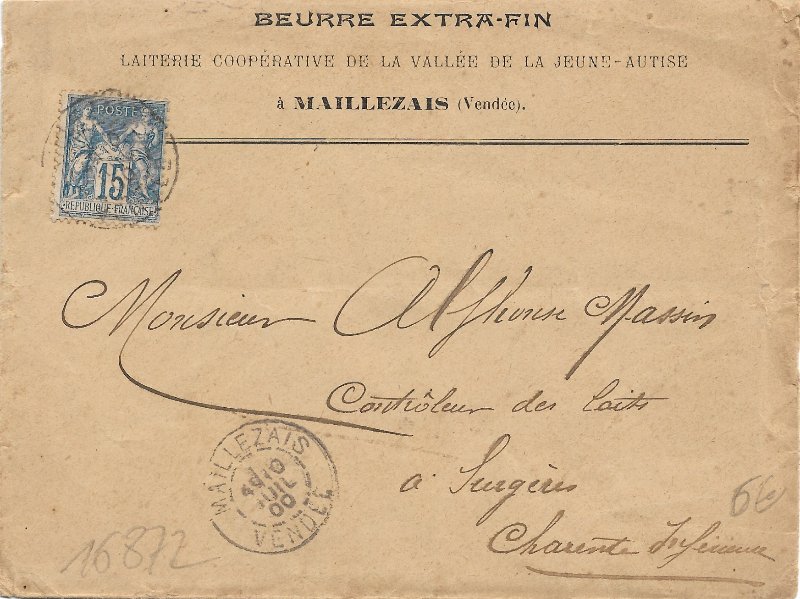 BEURRE EXTRA-FIN
LAITERIE COOPÉRATIVE DE LA VALLÉE DE LA JEUNE-AUTISE
à MAILLEZAIS (Vendée).
POSTES
15
REPUBLIQUE FRANÇAISE
Monsieur Alphonse Massin
Contrôleur des laits
à Surgères
Charente Inférieure
MAILLEZAIS
10
JUIL
00
VENDÉE
6€
16872